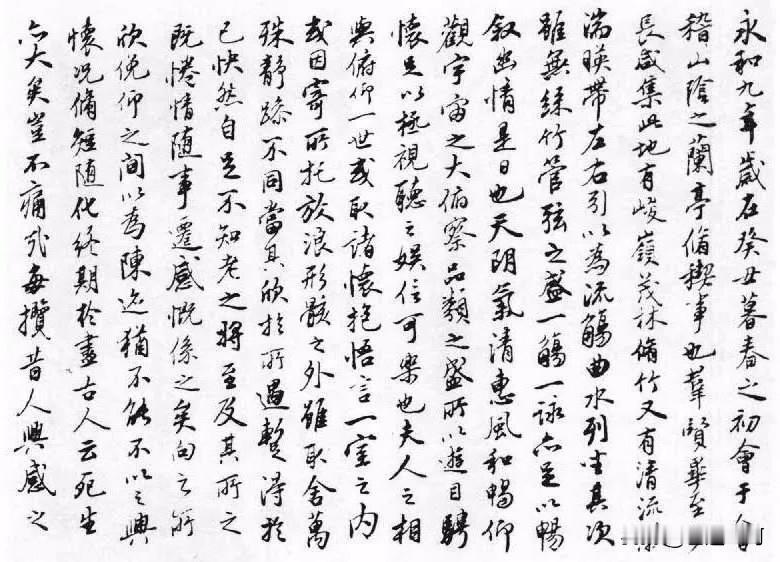 永和九年歲在癸丑暮春之初會于會
稽山陰之蘭亭脩禊事也羣賢畢至
長咸集此地有峻嶺茂林脩竹又有清流
湍暎帶左右引以為流觴曲水列坐其次
雖無絲竹管弦之盛一觴一詠亦足以暢
敘幽情是日也天朗氣清惠風和暢仰
觀宇宙之大俯察品類之盛所以遊目騁
懷足以極視聽之娛信可樂也夫人之相
與俯仰一世或取諸懷抱悟言一室之內
或因寄所托放浪形骸之外雖取舍萬
殊靜躁不同當其欣於所遇暫得於
己快然自足不知老之將至及其所之
既惓情隨事遷感慨係之矣向之所
欣俛仰之間以為陳迹猶不能不以之興
懷況脩短隨化終期於盡古人云死生
亦大矣豈不痛哉每攬昔人興感之